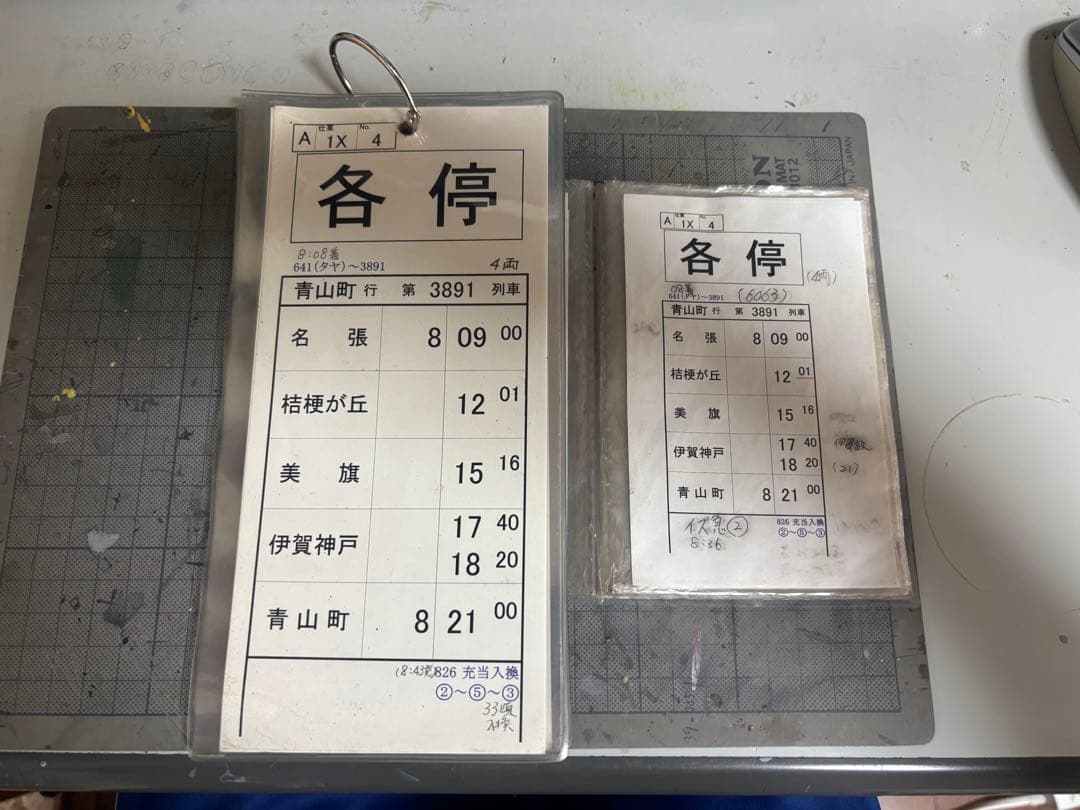 A 仕業 1X No. 4
各停
8:08着
641(タヤ)～3891 4両
青山町 行 第 3891 列車
名張 8 09 00
桔梗が丘 12 01
美旗 15 16
伊賀神戸 17 40
18 20
青山町 8 21 00
826 充当入換
②～⑤～③
33頃
A 仕業 1X No. 4
各停
(4両)
08着
641(タヤ)～3891
青山町 行 第 3891 列車
名張 8 09 00
桔梗が丘 12 01
美旗 15 16
伊賀神戸 17 40
18 20
(21)
青山町 8 21 00
826 充当入換
②～⑤～③
8:36
JAPAN